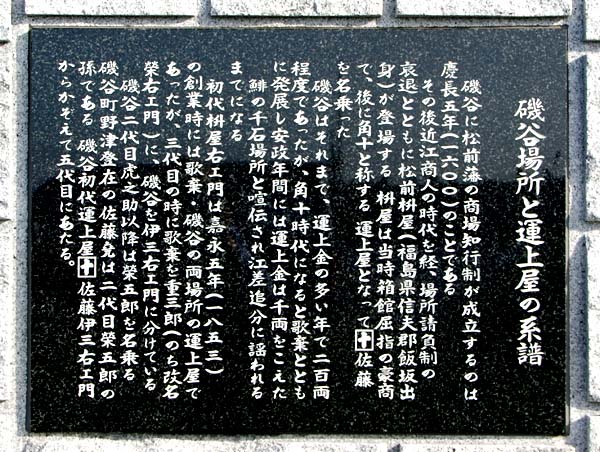 磯谷場所と運上屋の系譜
磯谷に松前藩の商場知行制が成立するのは
慶長五年(一六〇〇)のことである
その後近江商人の時代を経、場所請負制の
衰退とともに松前枡屋(福島県信夫郡飯坂出
身)が登場する 枡屋は当時箱館屈指の豪商
で、後に角十と称する 運上屋となって佐藤
を名乗った
磯谷はそれまで、運上金の多い年で二百両
程度であったが、角十時代になると歌棄ととも
に発展し安政年間には運上金は千両をこえた
鯡の千石場所と喧伝され江差追分に謡われる
までになる
初代枡屋右エ門は嘉永五年(一八五三)
の創業時には歌棄・磯谷の両場所の運上屋で
あったが、三代目の時に歌棄を重三郎(のち改名
栄右エ門)に、磯谷を伊三右エ門に分けている
磯谷二代目虎之助以降は榮五郎を名乗る
磯谷町野津登在の佐藤免は二代目榮五郎の
孫である 磯谷初代運上屋佐藤伊三右エ門
からかぞえて五代目にあたる。